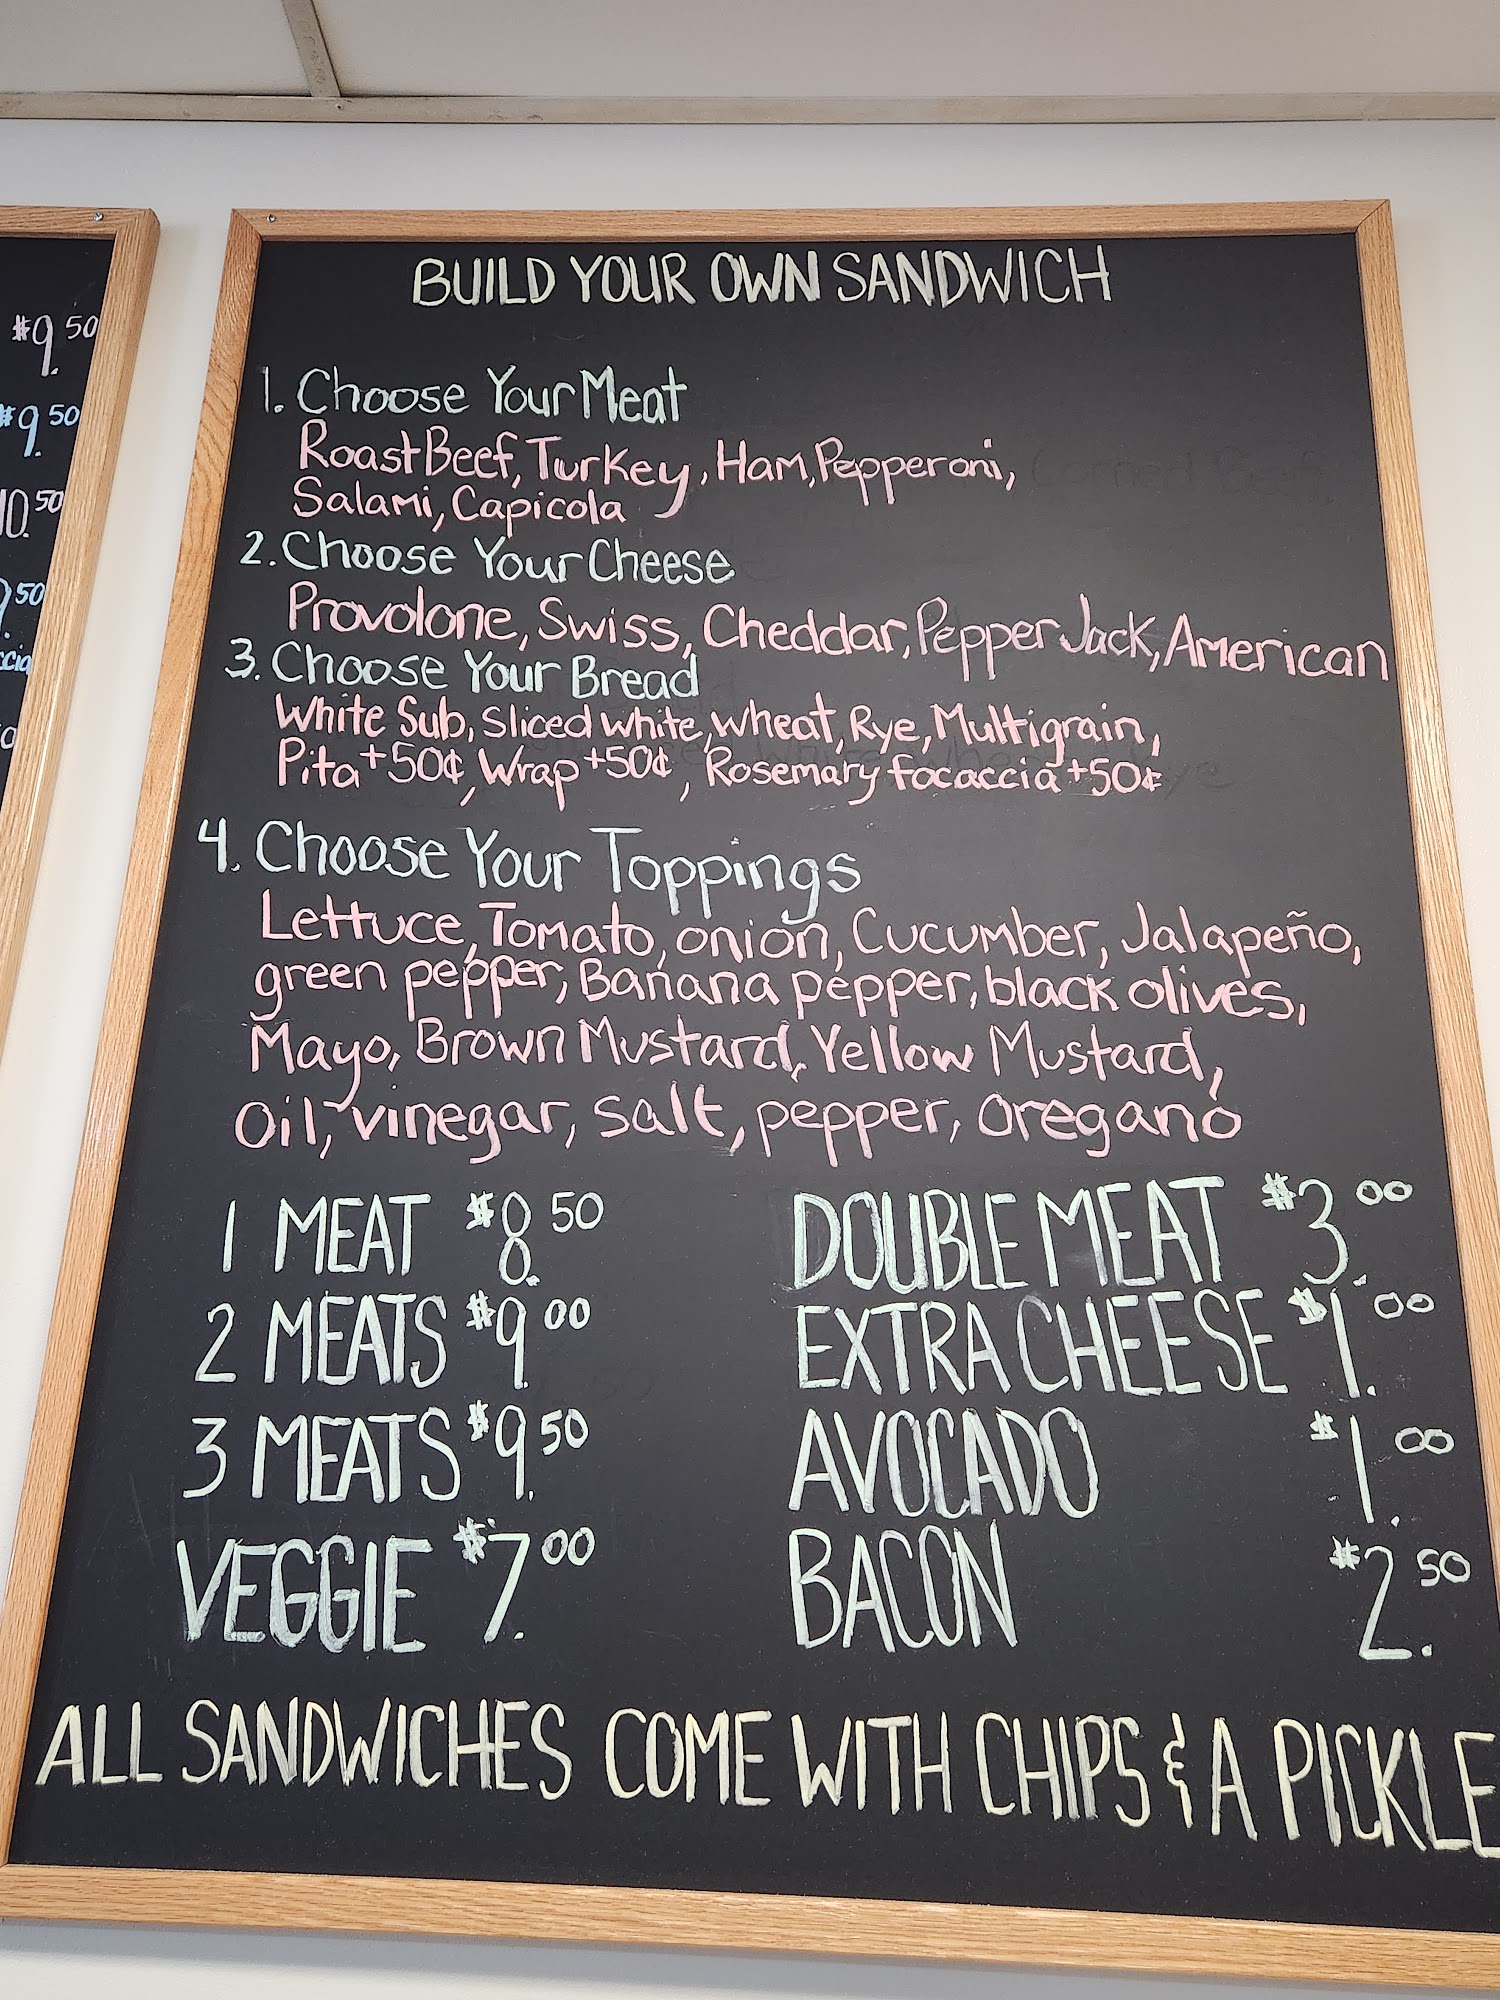 $9.50
$9.50
10.50
9.50
BUILD YOUR OWN SANDWICH
1. Choose Your Meat
Roast Beef, Turkey, Ham, Pepperoni,
Salami, Capicola
2. Choose Your Cheese
Provolone, Swiss, Cheddar, Pepper Jack, American
3. Choose Your Bread
White Sub, Sliced white, wheat, Rye, Multigrain,
Pita +50¢, Wrap +50¢, Rosemary focaccia +50¢
4. Choose Your Toppings
Lettuce, Tomato, onion, Cucumber, Jalapeño,
green pepper, Banana pepper, black olives,
Mayo, Brown Mustard, Yellow Mustard,
Oil, vinegar, salt, pepper, oregano
1 MEAT $8.50 DOUBLE MEAT $3.00
2 MEATS $9.00 EXTRA CHEESE $1.00
3 MEATS $9.50 AVOCADO $1.00
VEGGIE $7.00 BACON $2.50
ALL SANDWICHES COME WITH CHIPS & A PICKLE